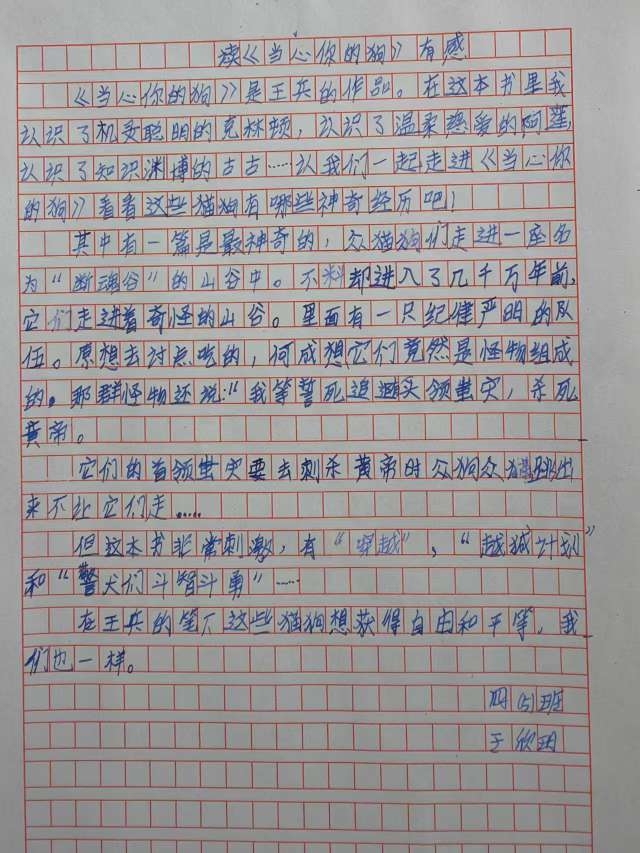 读《当心你的狗》有感
《当心你的狗》是王兵的作品。在这本书里我
认识了机灵聪明的克林顿，认识了温柔慈爱的阿蓬，
认识了知识渊博的古古……认我们一起走进《当心你
的狗》看看这些猫狗有哪些神奇经历吧！
其中有一篇是最神奇的，众猫狗们走进一座名
为“断魂谷”的山谷中。不料却进入了几千万年前，
它们走进着奇怪的山谷。里面有一只纪律严明的队
伍。原想去讨点吃的，何成想它们竟然是怪物组成
的。那群怪物还说：“我等誓死追随头领蚩尤，杀死
黄帝。
它们的首领蚩尤要去刺杀黄帝时众狗众猫跳出
来不让它们走……
但这本书非常刺激，有“穿越”，“越狱计划”
和“警犬们斗智斗勇”……
在王兵的笔下这些猫狗想获得自由和平等，我
们也一样。
四(5)班
王欣玥